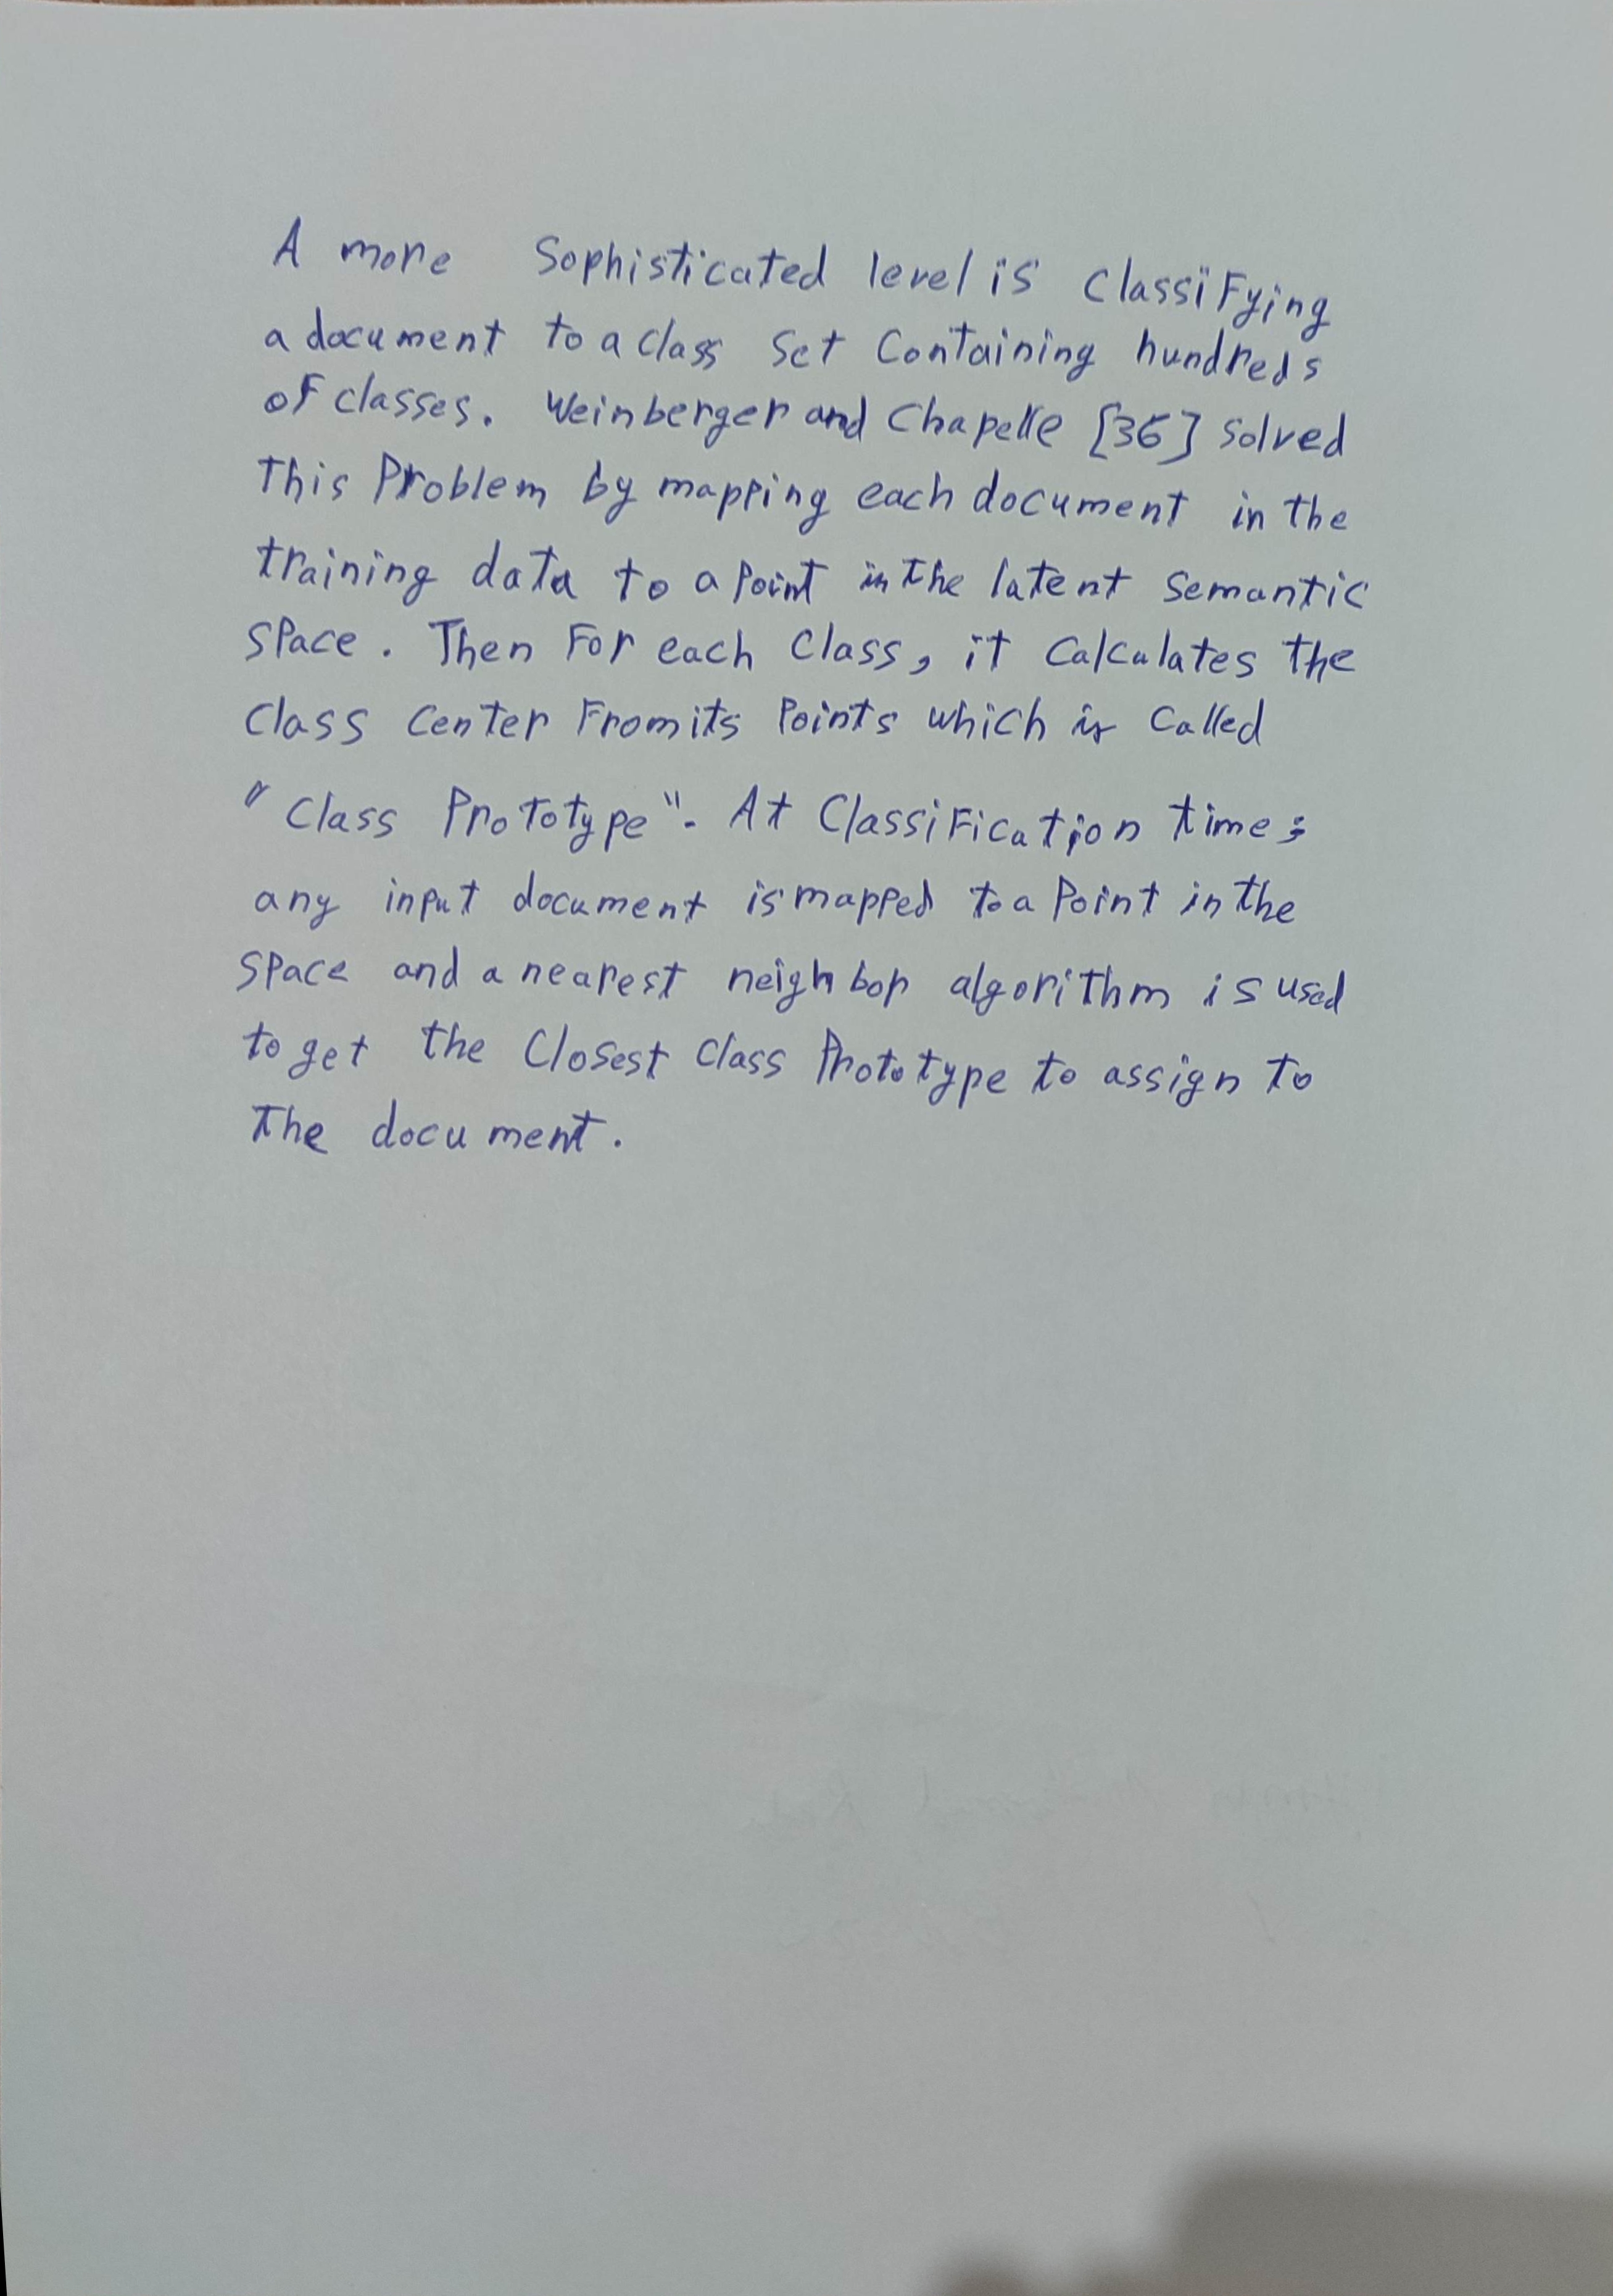 A more Sophisticated level is classifying
a document to a class set containing hundreds
of classes. Weinberger and Chapelle [36] solved
This Problem by mapping each document in the
training data to a point in the latent semantic
space. Then For each Class, it calculates the
class center From its Points which is called
"Class Prototype". At Classification time;
any input document is mapped to a Point in the
space and a nearest neighbor algorithm is used
to get the closest class Prototype to assign to
The document.